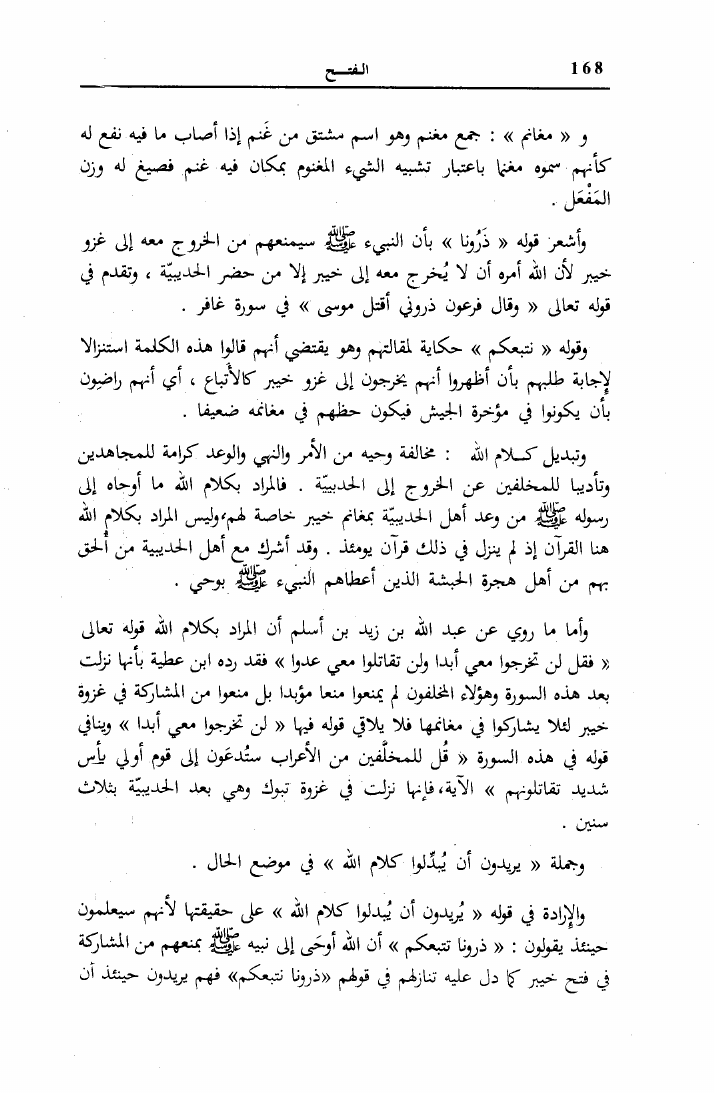 168
الفتـــح
و « مغانم » : جمع مغنم وهو اسم مشتق من غَنم إذا أصاب ما فيه نفع له
كأنهم سموه مغنما باعتبار تشبيه الشيء المغنوم بمكان فيه غنم فصيغ له وزن
المَفْعَل .
وأشعر قوله « ذَرُونا » بأن النبيء ﷺ سيمنعهم من الخروج معه إلى غزو
خيبر لأن الله أمره أن لا يُخرج معه إلى خيبر إلا من حضر الحديبيّة ، وتقدم في
قوله تعالى « وقال فرعون ذروني أقتل موسى » في سورة غافر .
وقوله « نتبعكم » حكاية لمقالتهم وهو يقتضي أنهم قالوا هذه الكلمة استنزالا
لإجابة طلبهم بأن أظهروا أنهم يخرجون إلى غزو خيبر كالأتباع ، أي أنهم راضون
بأن يكونوا في مؤخرة الجيش فيكون حظهم في مغانمه ضعيفا .
وتبديل كــلام الله : مخالفة وحيه من الأمر والنهي والوعد كرامة للمجاهدين
وتأديبا للمخلفين عن الخروج إلى الحديبيّة . فالمراد بكلام الله ما أوحاه إلى
رسوله ﷺ من وعد أهل الحديبيّة بمغانم خيبر خاصة لهم،وليس المراد بكلام الله
هنا القرآن إذ لم ينزل في ذلك قرآن يومئذ . وقد أشرك مع أهل الحديبية من أُلحق
بهم من أهل هجرة الحبشة الذين أعطاهم النبيء ﷺ بوحي .
وأما ما روي عن عبد الله بن زيد بن أسلم أن المراد بكلام الله قوله تعالى
« فقل لن تخرجوا معي أبدا ولن تقاتلوا معي عدوا » فقد رده ابن عطية بأنها نزلت
بعد هذه السورة وهؤلاء المخلفون لم يمنعوا منعا مؤبدا بل منعوا من المشاركة في غزوة
خيبر لئلا يشاركوا في مغانمها فلا يلاقي قوله فيها « لن تخرجوا معي أبدا » وينافي
قوله في هذه السورة « قُل للمخلَّفين من الأعراب ستُدعَون إلى قوم أولي بأس
شديد تقاتلونهم » الآية، فإنها نزلت في غزوة تبوك وهي بعد الحديبيّة بثلاث
سنين .
وجملة « يريدون أن يُبدّلوا كلام الله » في موضع الحال .
والإرادة في قوله « يُريدون أن يُبدلوا كلام الله » على حقيقتها لأنهم سيعلمون
حينئذ يقولون : « ذرونا نتبعكم » أن الله أوحَى إلى نبيه ﷺ بمنعهم من المشاركة
في فتح خيبر كما دل عليه تنازلهم في قولهم «ذرونا نتبعكم» فهم يريدون حينئذ أن